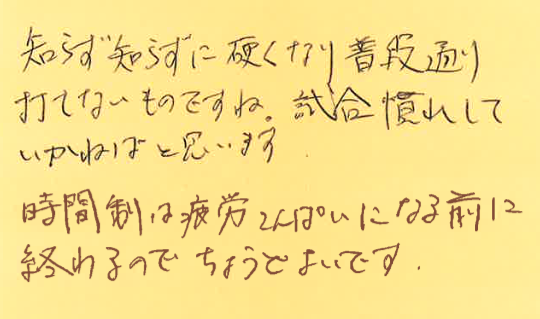 知らず知らずに硬くなり普段通り
打てないものですね。試合慣れして
いかねばと思います
時間制は疲労こんぱいになる前に
終れるのでちょうどよいです.